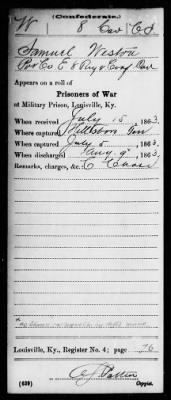 (Confederate.)
W 8 Cav Cd
Samuel Weston
Pvt Co E 8 Reg't Conf Cav
Appears on a roll of
Prisoners of War
at Military Prison, Louisville, Ky.
When received July 15, 1863.
Where captured Hillsboro Ten
When captured July 5, 1863
When discharged Aug 9, 1863.
Remarks, charges, &c.:
Louisville, Ky., Register No. 4; page 76
(639) Copyist.